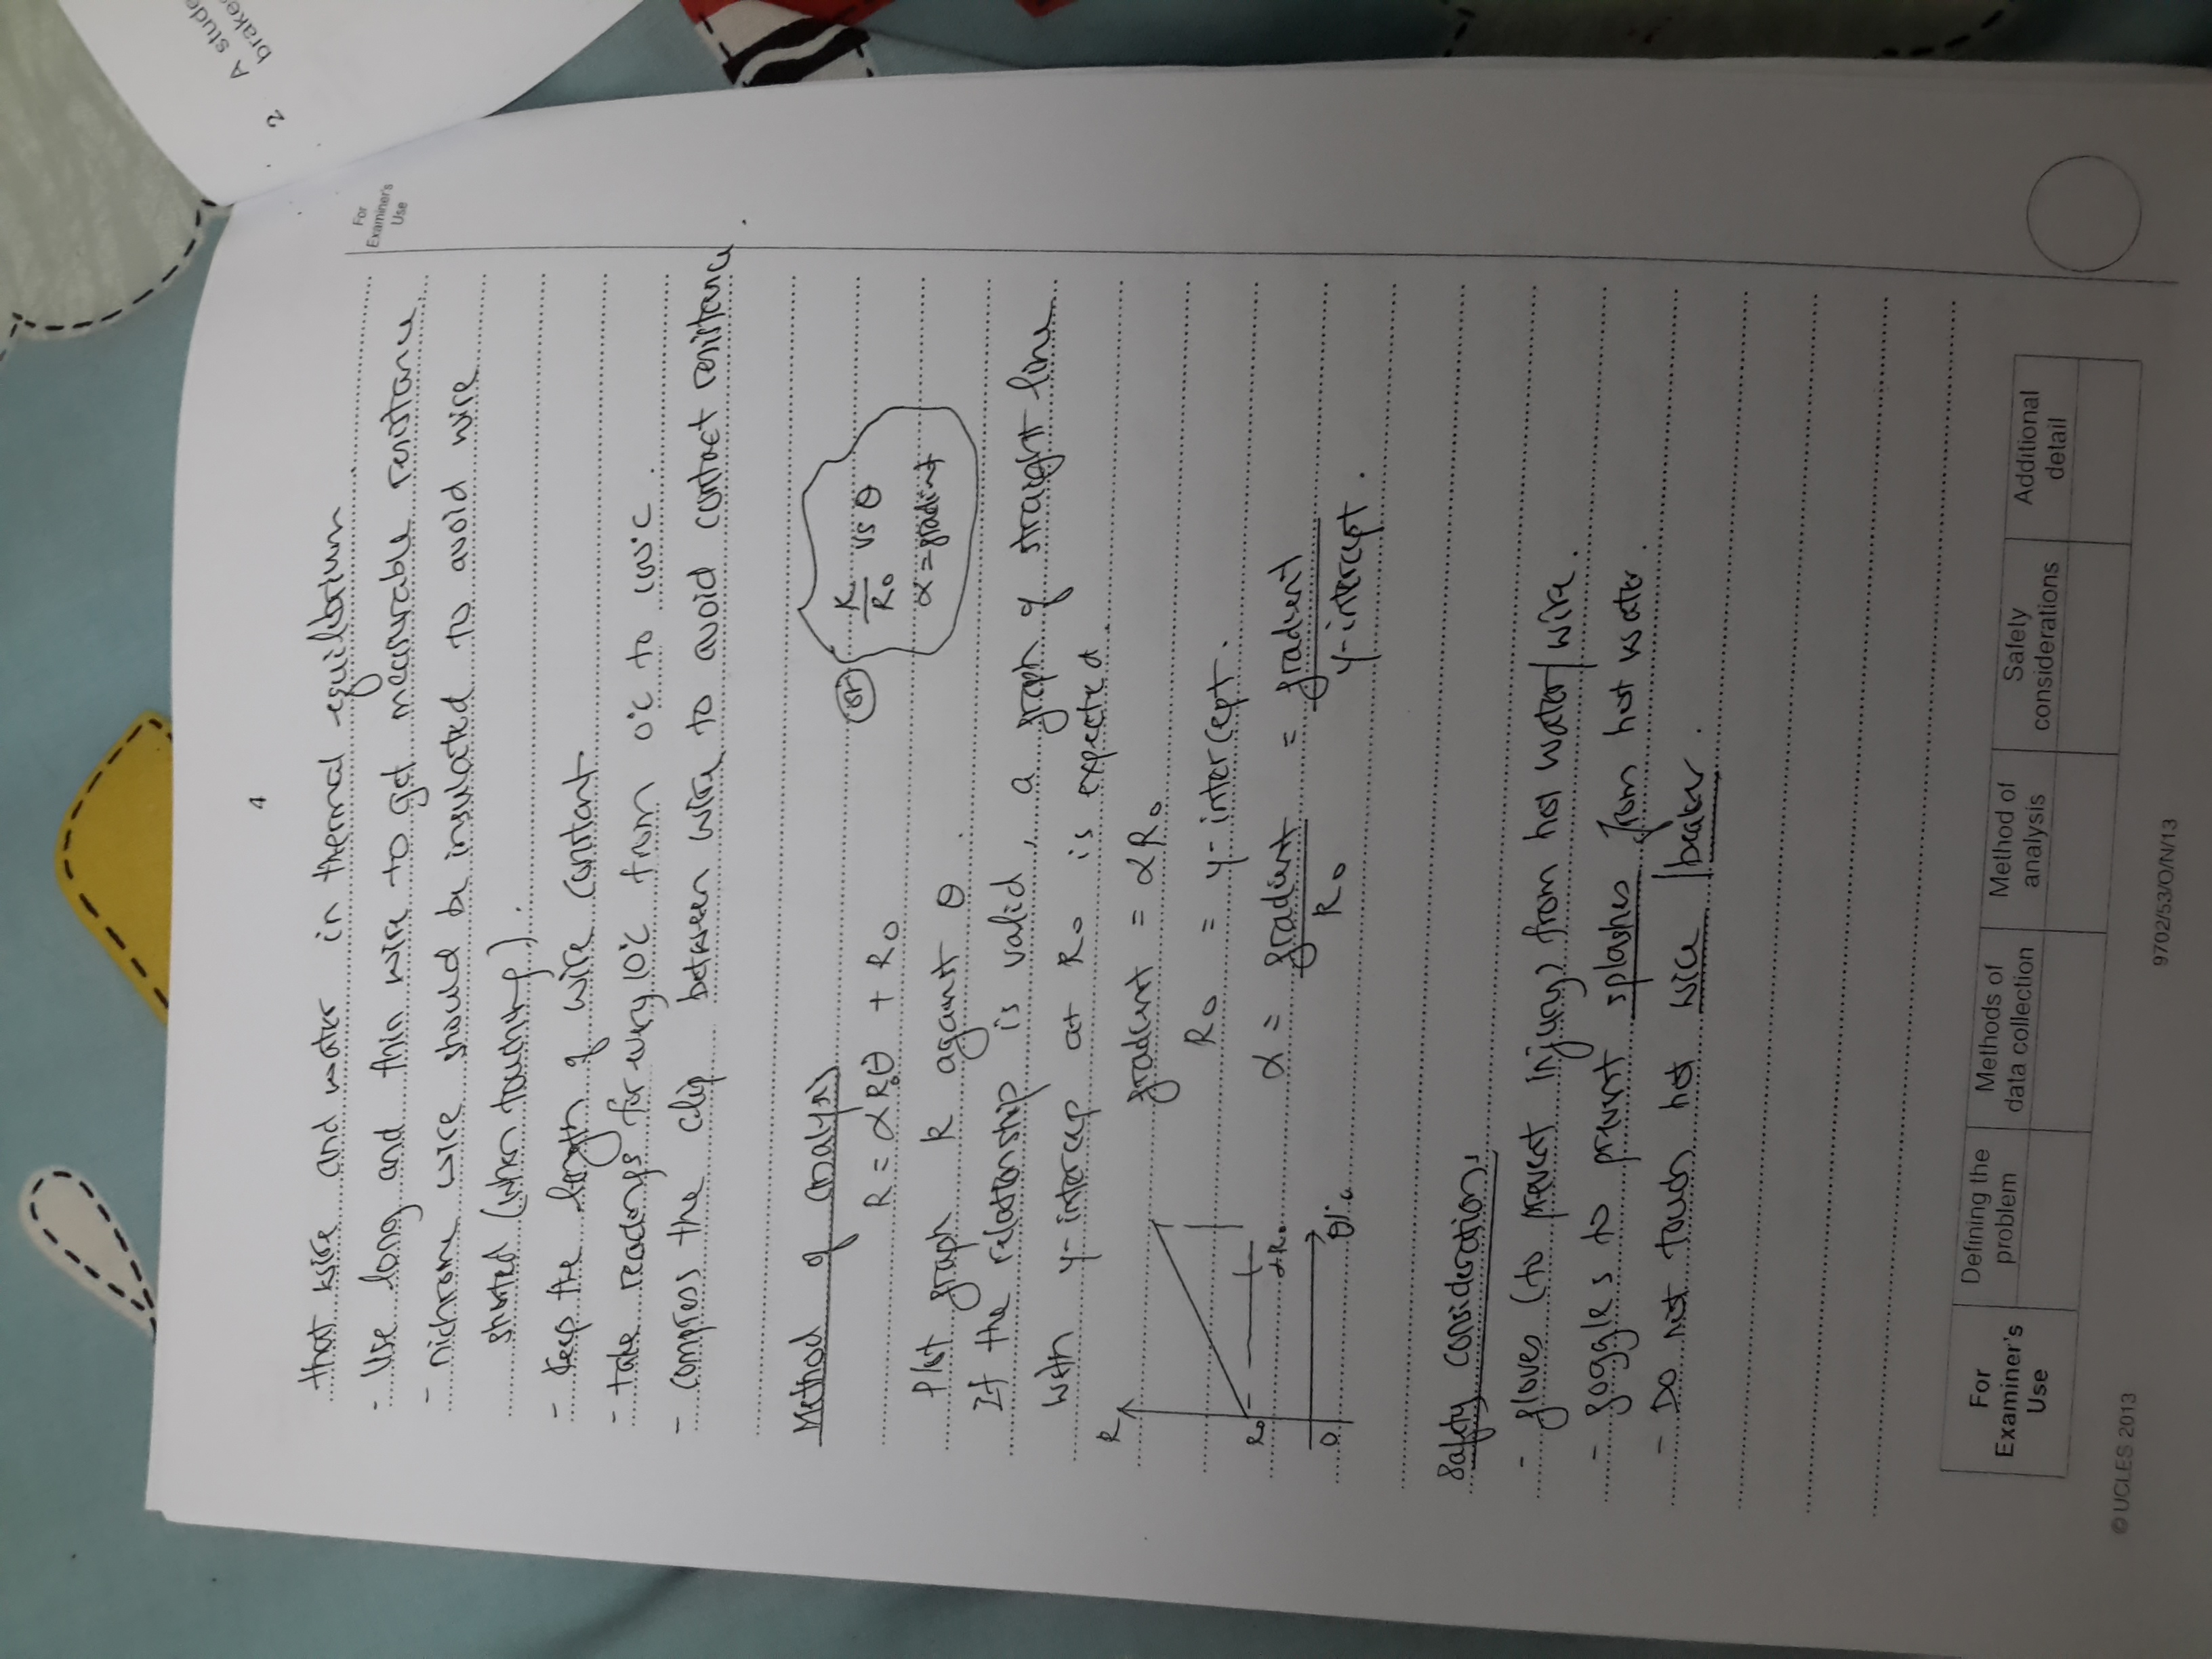 4
that wire and water in thermal equilibrium
- Use long and thin wire to get measurable resistance.
- nichrome wire should be insulated to avoid wire
shorted (when touching).
- keep the length of wire constant
- take readings for every 10°C from 0°C to 100°C.
- compress the clip between wire to avoid contact resistance.
For
Examiner's
Use
Method of analysis
R = αR₀θ + R₀
or
R/R₀ vs θ
α = gradient
Plot graph R against θ.
If the relationship is valid, a graph of straight line
with y-intercep at R₀ is expected.
R
R₀
αR₀
0
θ/°C
gradient = αR₀
R₀ = y-intercept.
α = gradient/R₀ = gradient/y-intercept.
Safety considerations
- gloves (to prevent injury) from hot water/wire.
- goggles to prevent splashes from hot water.
- Do not touch hot wire/beaker.
For
Examiner's
Use
Defining the
problem
Methods of
data collection
Method of
analysis
Safely
considerations
Additional
detail
© UCLES 2013
9702/53/O/N/13
2
A stude
brake